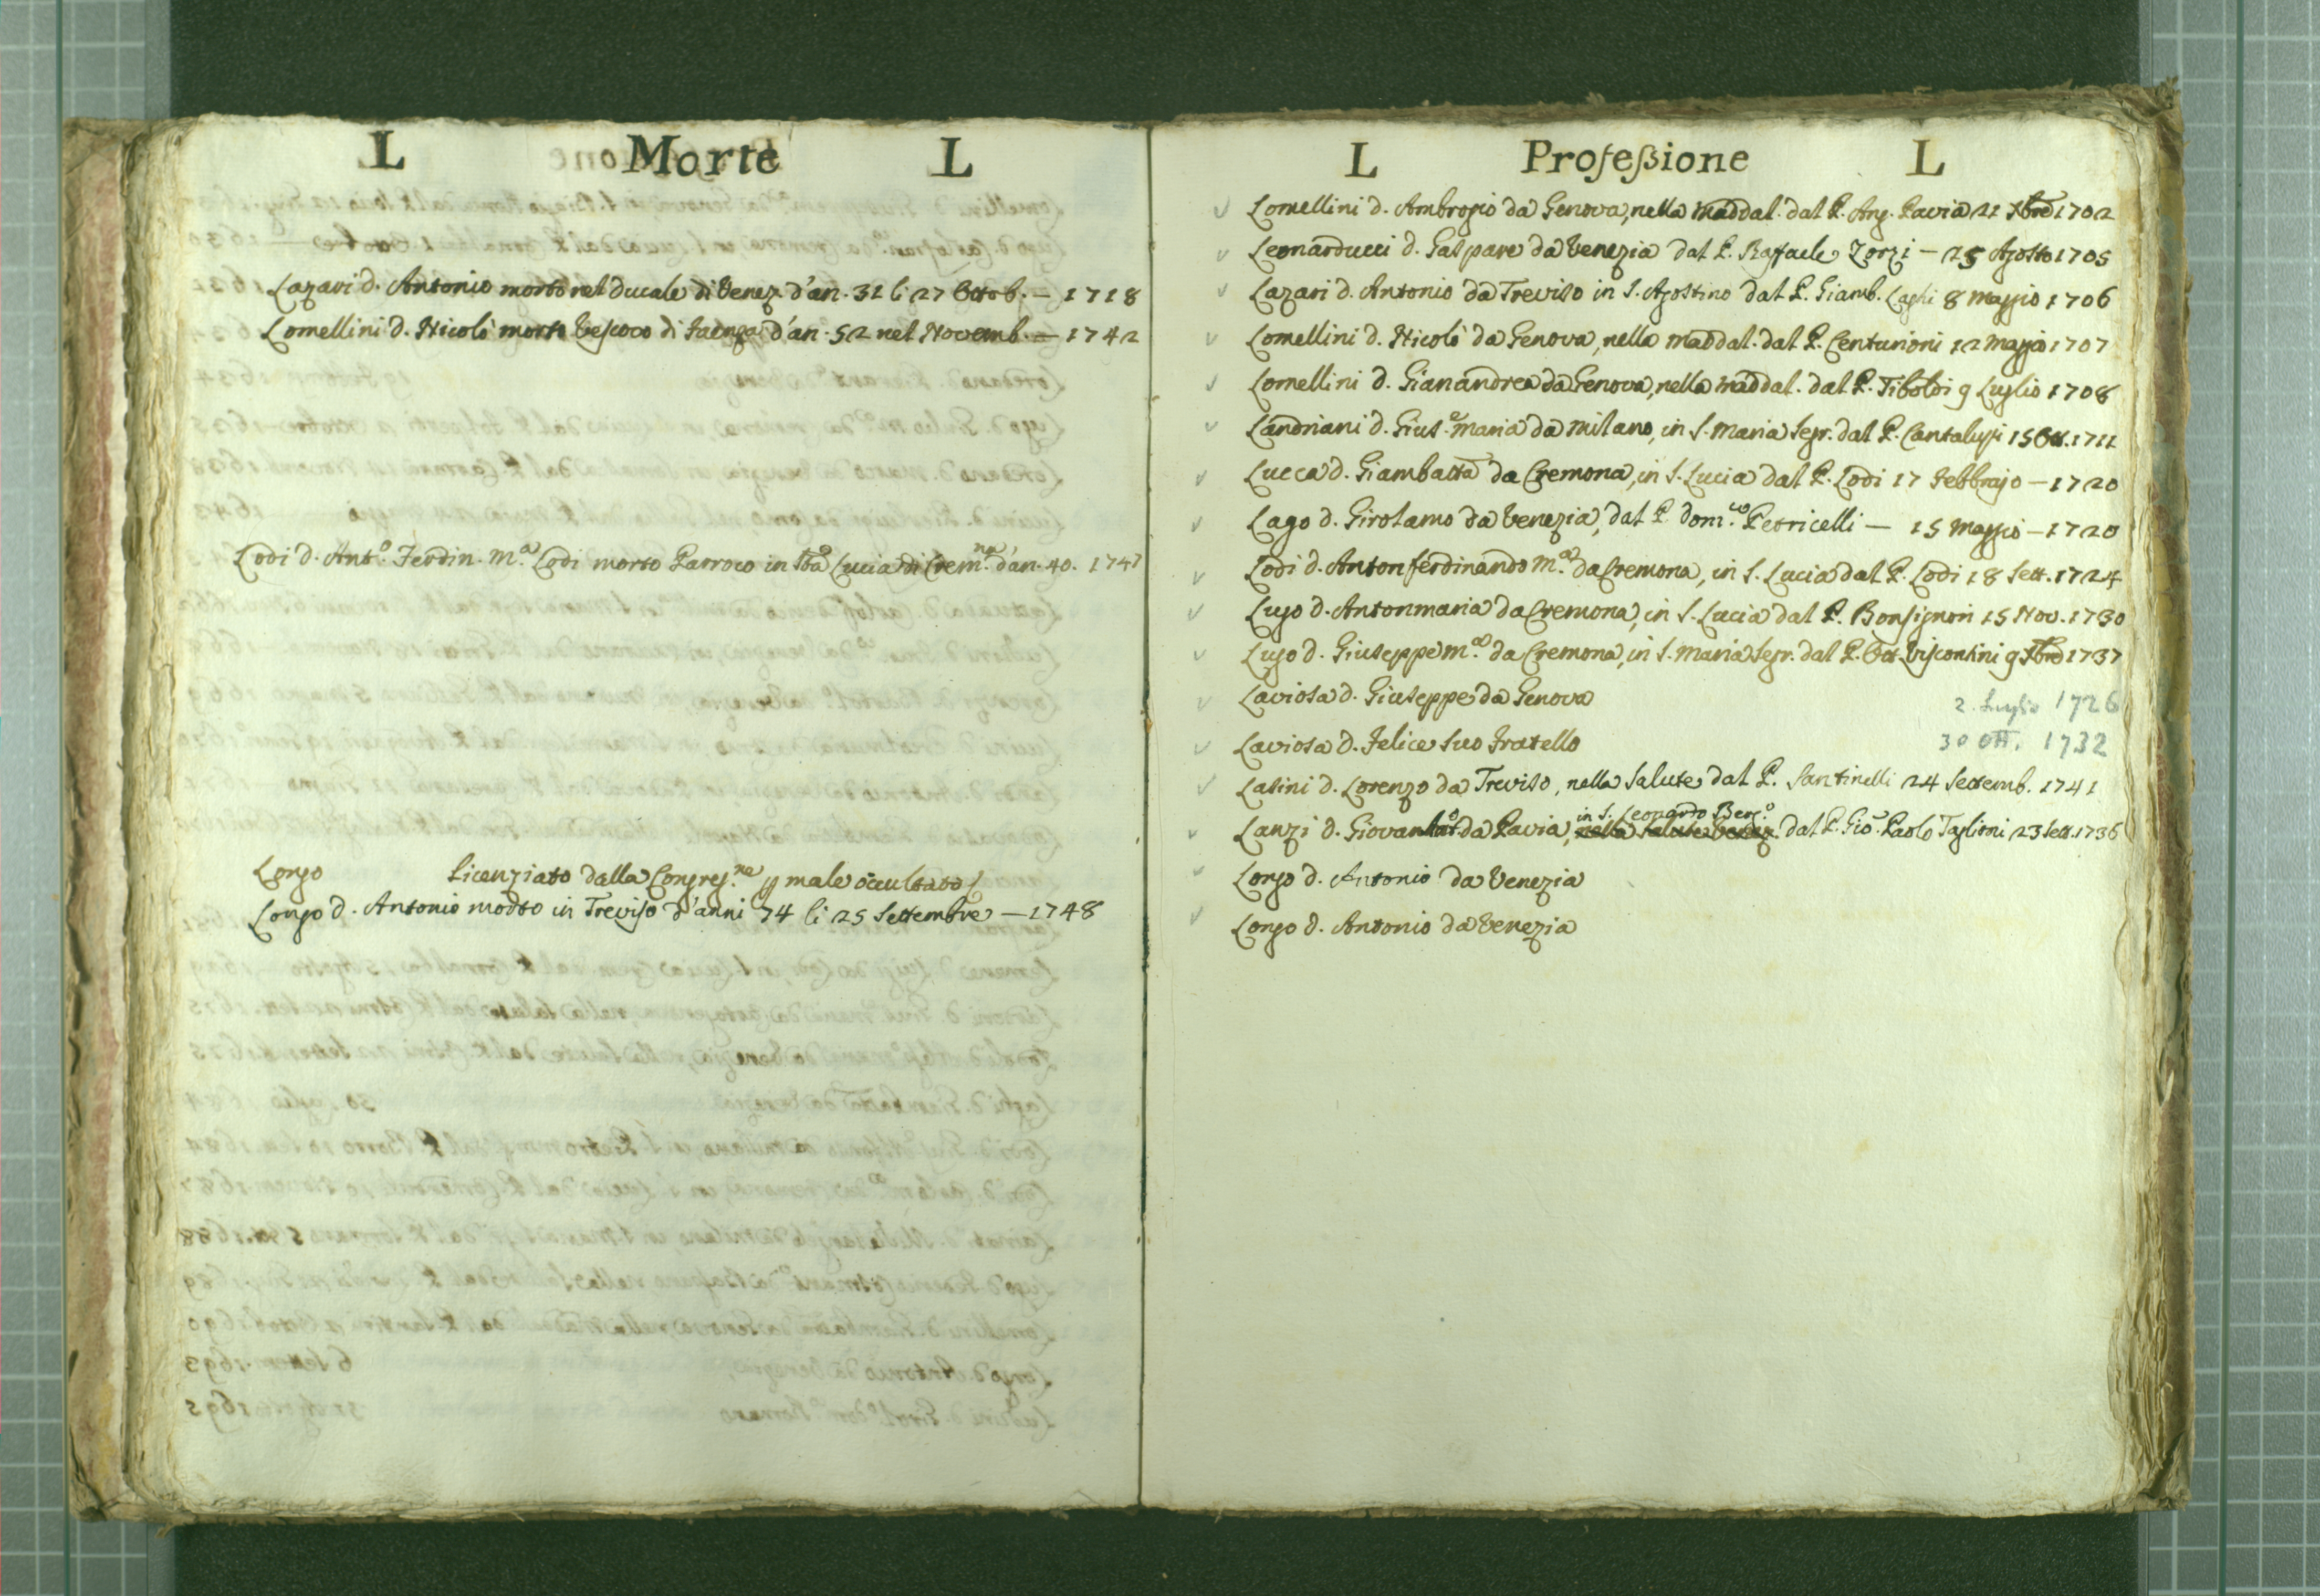 L Morte L
Lazari d. Antonio morto nel Ducale di Venez. d'an. 31 li 27 Ottob. — 1718
Lomellini d. Nicolò morto Vescovo di Faenza d'an. 52 nel Novemb. — 1742
Lodi d. Ant.º Ferdin. M.ª Lodi morto Parroco in Sta Lucia di Crem.na d'an. 40. 1747
Longo Licenziato dalla Congreg.ne p male occultato
Longo d. Antonio morto in Treviso d'anni 74 li 25 Settembre — 1748
L Professione L
Lomellini d. Ambrogio da Genova, nella Maddal. dal P. Ang. Pavia 21 Xbre 1702
Leonarducci d. Gaspare da Venezia dal P. Raffaele Zorzi — 25 Agosto 1705
Lazari d. Antonio da Treviso in S. Agostino dal P. Giamb. Laghi 8 Maggio 1706
Lomellini d. Nicolò da Genova, nella Maddal. dal P. Centurioni 12 Maggio 1707
Lomellini d. Gianandrea da Genova, nella Maddal. dal P. Tiboldi 9 Luglio 1708
Landriani d. Gius.e Maria da Milano, in S. Maria Segr. dal P. Cantalupi 15 Ott. 1711
Lucca d. Giambatta da Cremona, in S. Lucia dal P. Lodi 17 Febbrajo — 1720
Lago d. Girolamo da Venezia, dal P. Dom.co Petricelli — 15 Maggio — 1720
Lodi d. Anton ferdinando M.ª da Cremona, in S. Lucia dal P. Lodi 18 Sett. 1724
Lugo d. Antonmaria da Cremona, in S. Lucia dal P. Bonsignori 15 Nov. 1730
Lugo d. Giuseppe M.ª da Cremona, in S. Maria Segr. dal P. Ott. Viscontini 9 Xbre 1737
Laviosa d. Giuseppe da Genova 2. Luglio 1726
Laviosa d. Felice suo Fratello 30 Ott. 1732
Lasini d. Lorenzo da Treviso, nella Salute dal P. Santinelli 24 Settemb. 1741
in S. Leonardo Berg.º
Lanzi d. Giovan da Pavia, nella Salute dal P. Gio. Paolo Taglioni 23 Sett. 1736
Longo d. Antonio da Venezia
Longo d. Antonio da Venezia